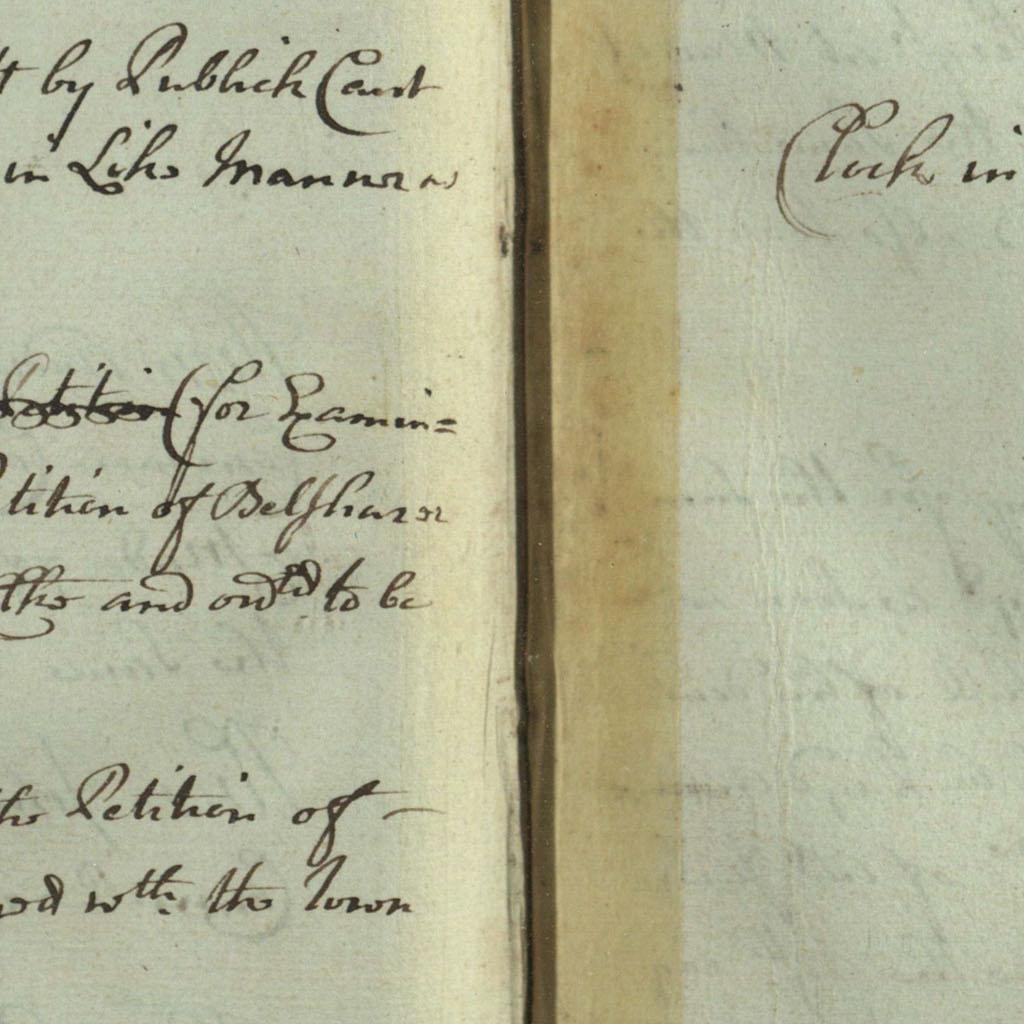 by Publick Cant
in Like Manner as
Petition (for Examin=
tition of Belshazer
the and ord^ed to be
the Petition of —
w^th. the Town
Clock in